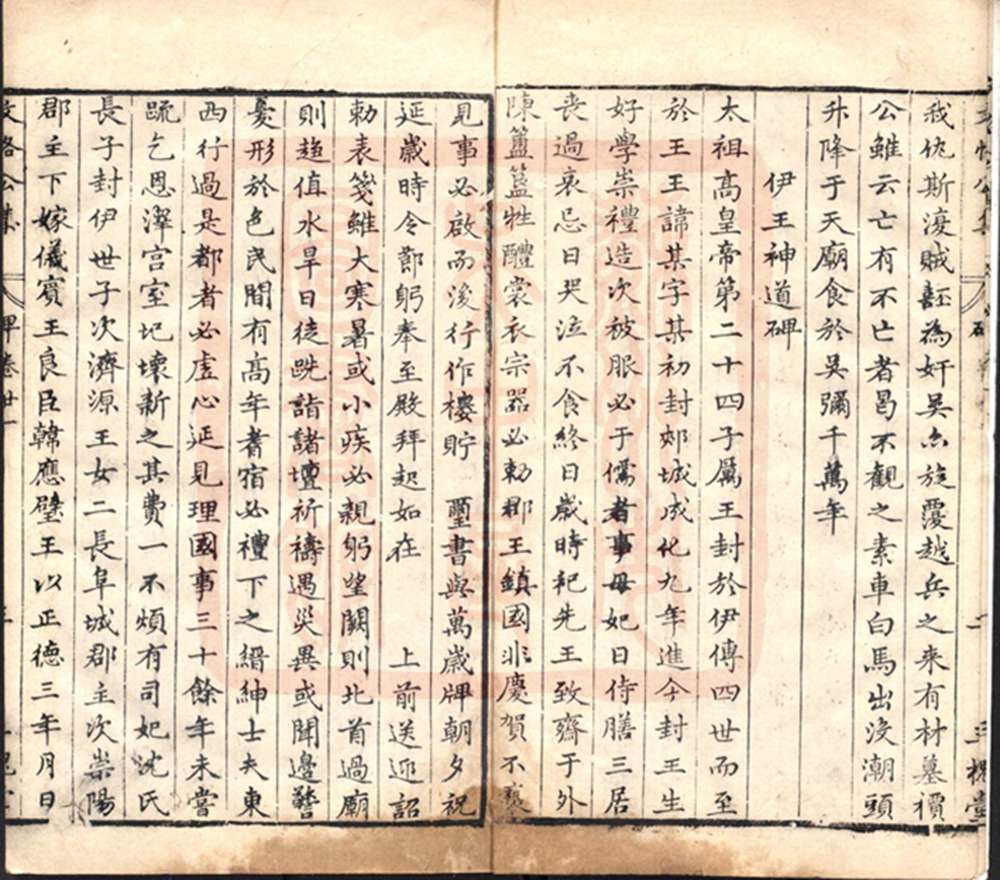 我仇斯復賊嚭為奸吳亦旋覆越兵之來有材墓檟
公雖云亡有不亡者曷不觀之素車白馬出沒潮頭
升降于天廟食於吳彌千萬年
伊王神道碑
太祖高皇帝第二十四子厲王封於伊傳四世而至
於王王諱某字某初封郟城成化九年進今封王生
好學崇禮造次被服必于儒者事母妃日侍膳三居
喪過哀忌日哭泣不食終日歲時祀先王致齋于外
陳簠簋牲醴裳衣宗器必勑郡王鎮國非慶賀不褻
見事必啟而後行作樓貯 璽書與萬歲牌朝夕祝
延歲時令節躬奉至殿拜起如在 上前送迎詔
勑表箋雖大寒暑或小疾必親躬望闕則北首過廟
則趨值水旱日徒跣詣諸壇祈禱遇災異或聞邊警
憂形於色民間有高年耆宿必禮下之縉紳士夫東
西行過是都者必虛心延見理國事三十餘年未嘗
疏乞恩澤宮室圮壞新之其費一不煩有司妃沈氏
長子封伊世子次濟源王女二長阜城郡主次崇陽
郡主下嫁儀賓王良臣韓應璧王以正德三年月日